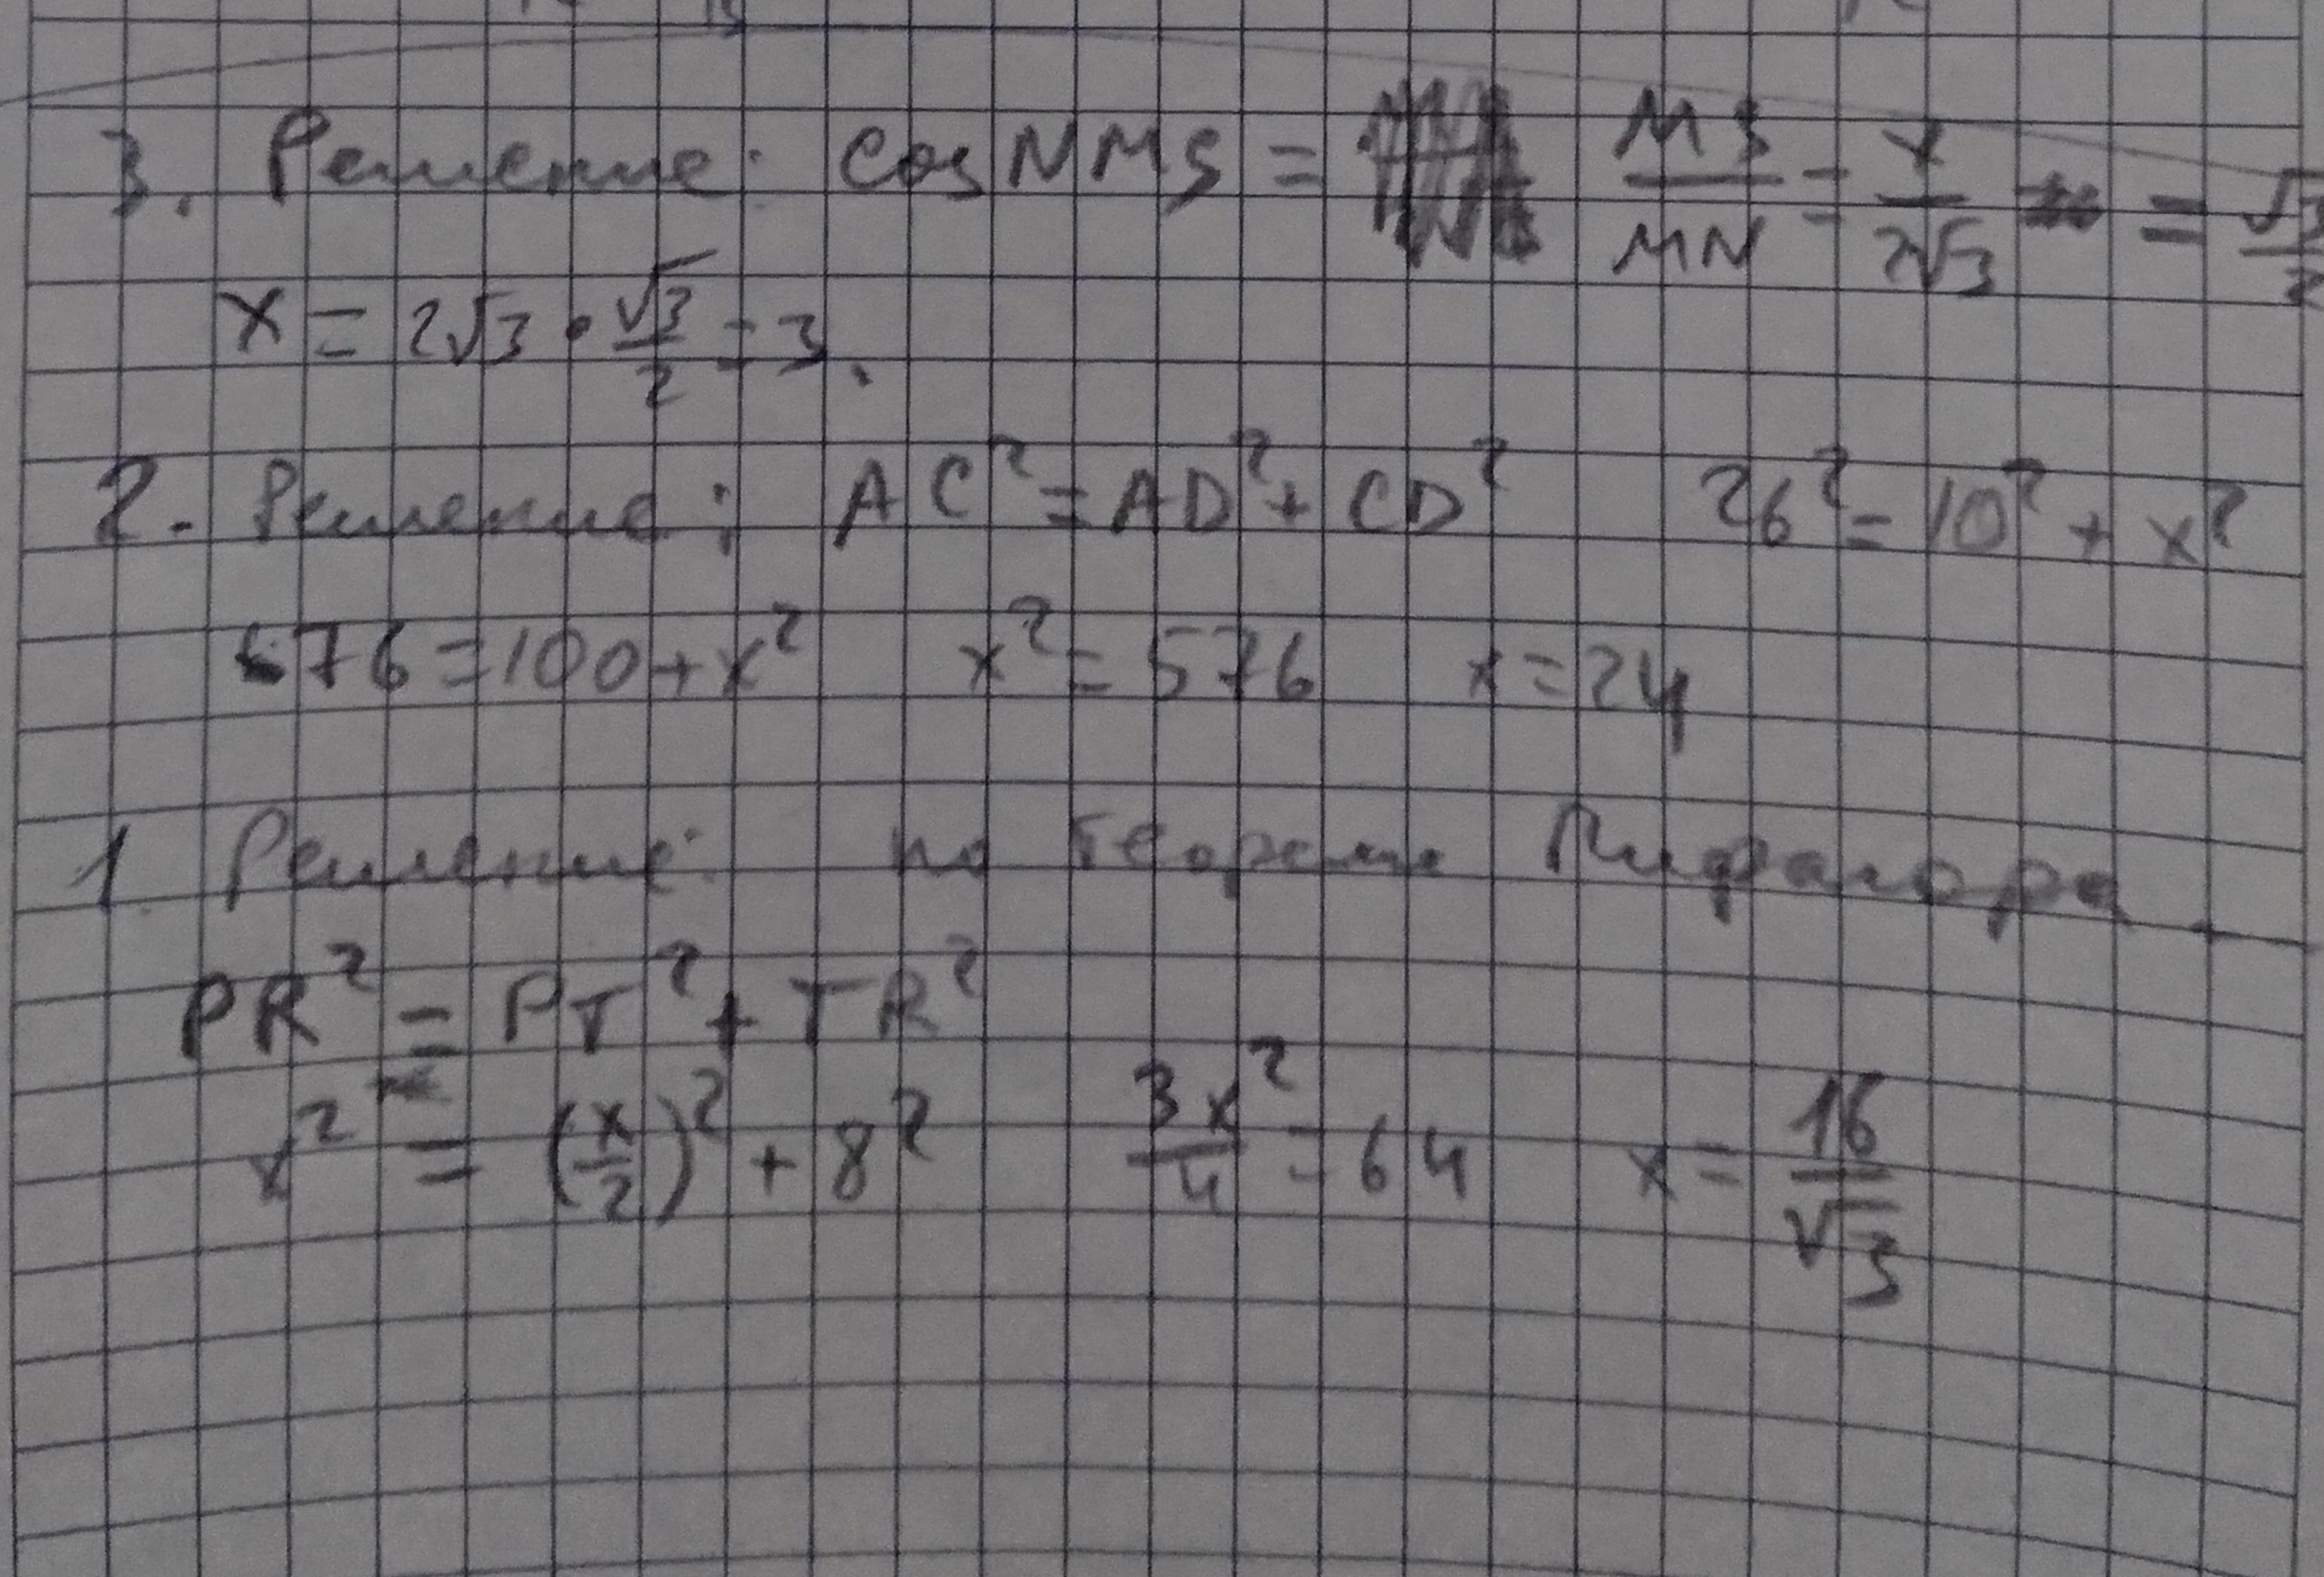 3. Решение: cos NMS = MS/MN = x/2√3 = √3/2
x = 2√3 · √3/2 = 3.
2. Решение: AC² = AD² + CD² 26² = 10² + x²
676 = 100 + x² x² = 576 x = 24
1. Решение: по теореме Пифагора.
PR² = PT² + TR²
x² = (x/2)² + 8² 3x²/4 = 64 x = 16/√3